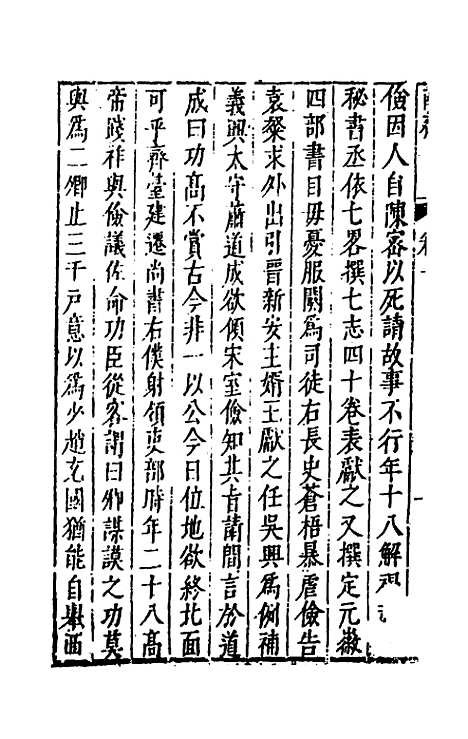 儉因人自陳密以死請故事不行年十八解褐
秘書丞依七畧撰七志四十卷表獻之又撰定元徽
四部書目毋憂服闋爲司徒右長史蒼梧暴虐儉告
袁粲求外出引晉新安主婿王獻之任吳興爲例補
義興太守蕭道成欲傾宋室儉知其旨請間言於道
成曰功高不賞古今非一以公今日位地欲終北面
可乎齊臺建遷尚書右僕射領吏部時年二十八高
帝踐祚與儉議佐命功臣從容謂曰卿謀謨之功莫
與爲二卿止三千戶意以爲少趙充國猶能自舉西